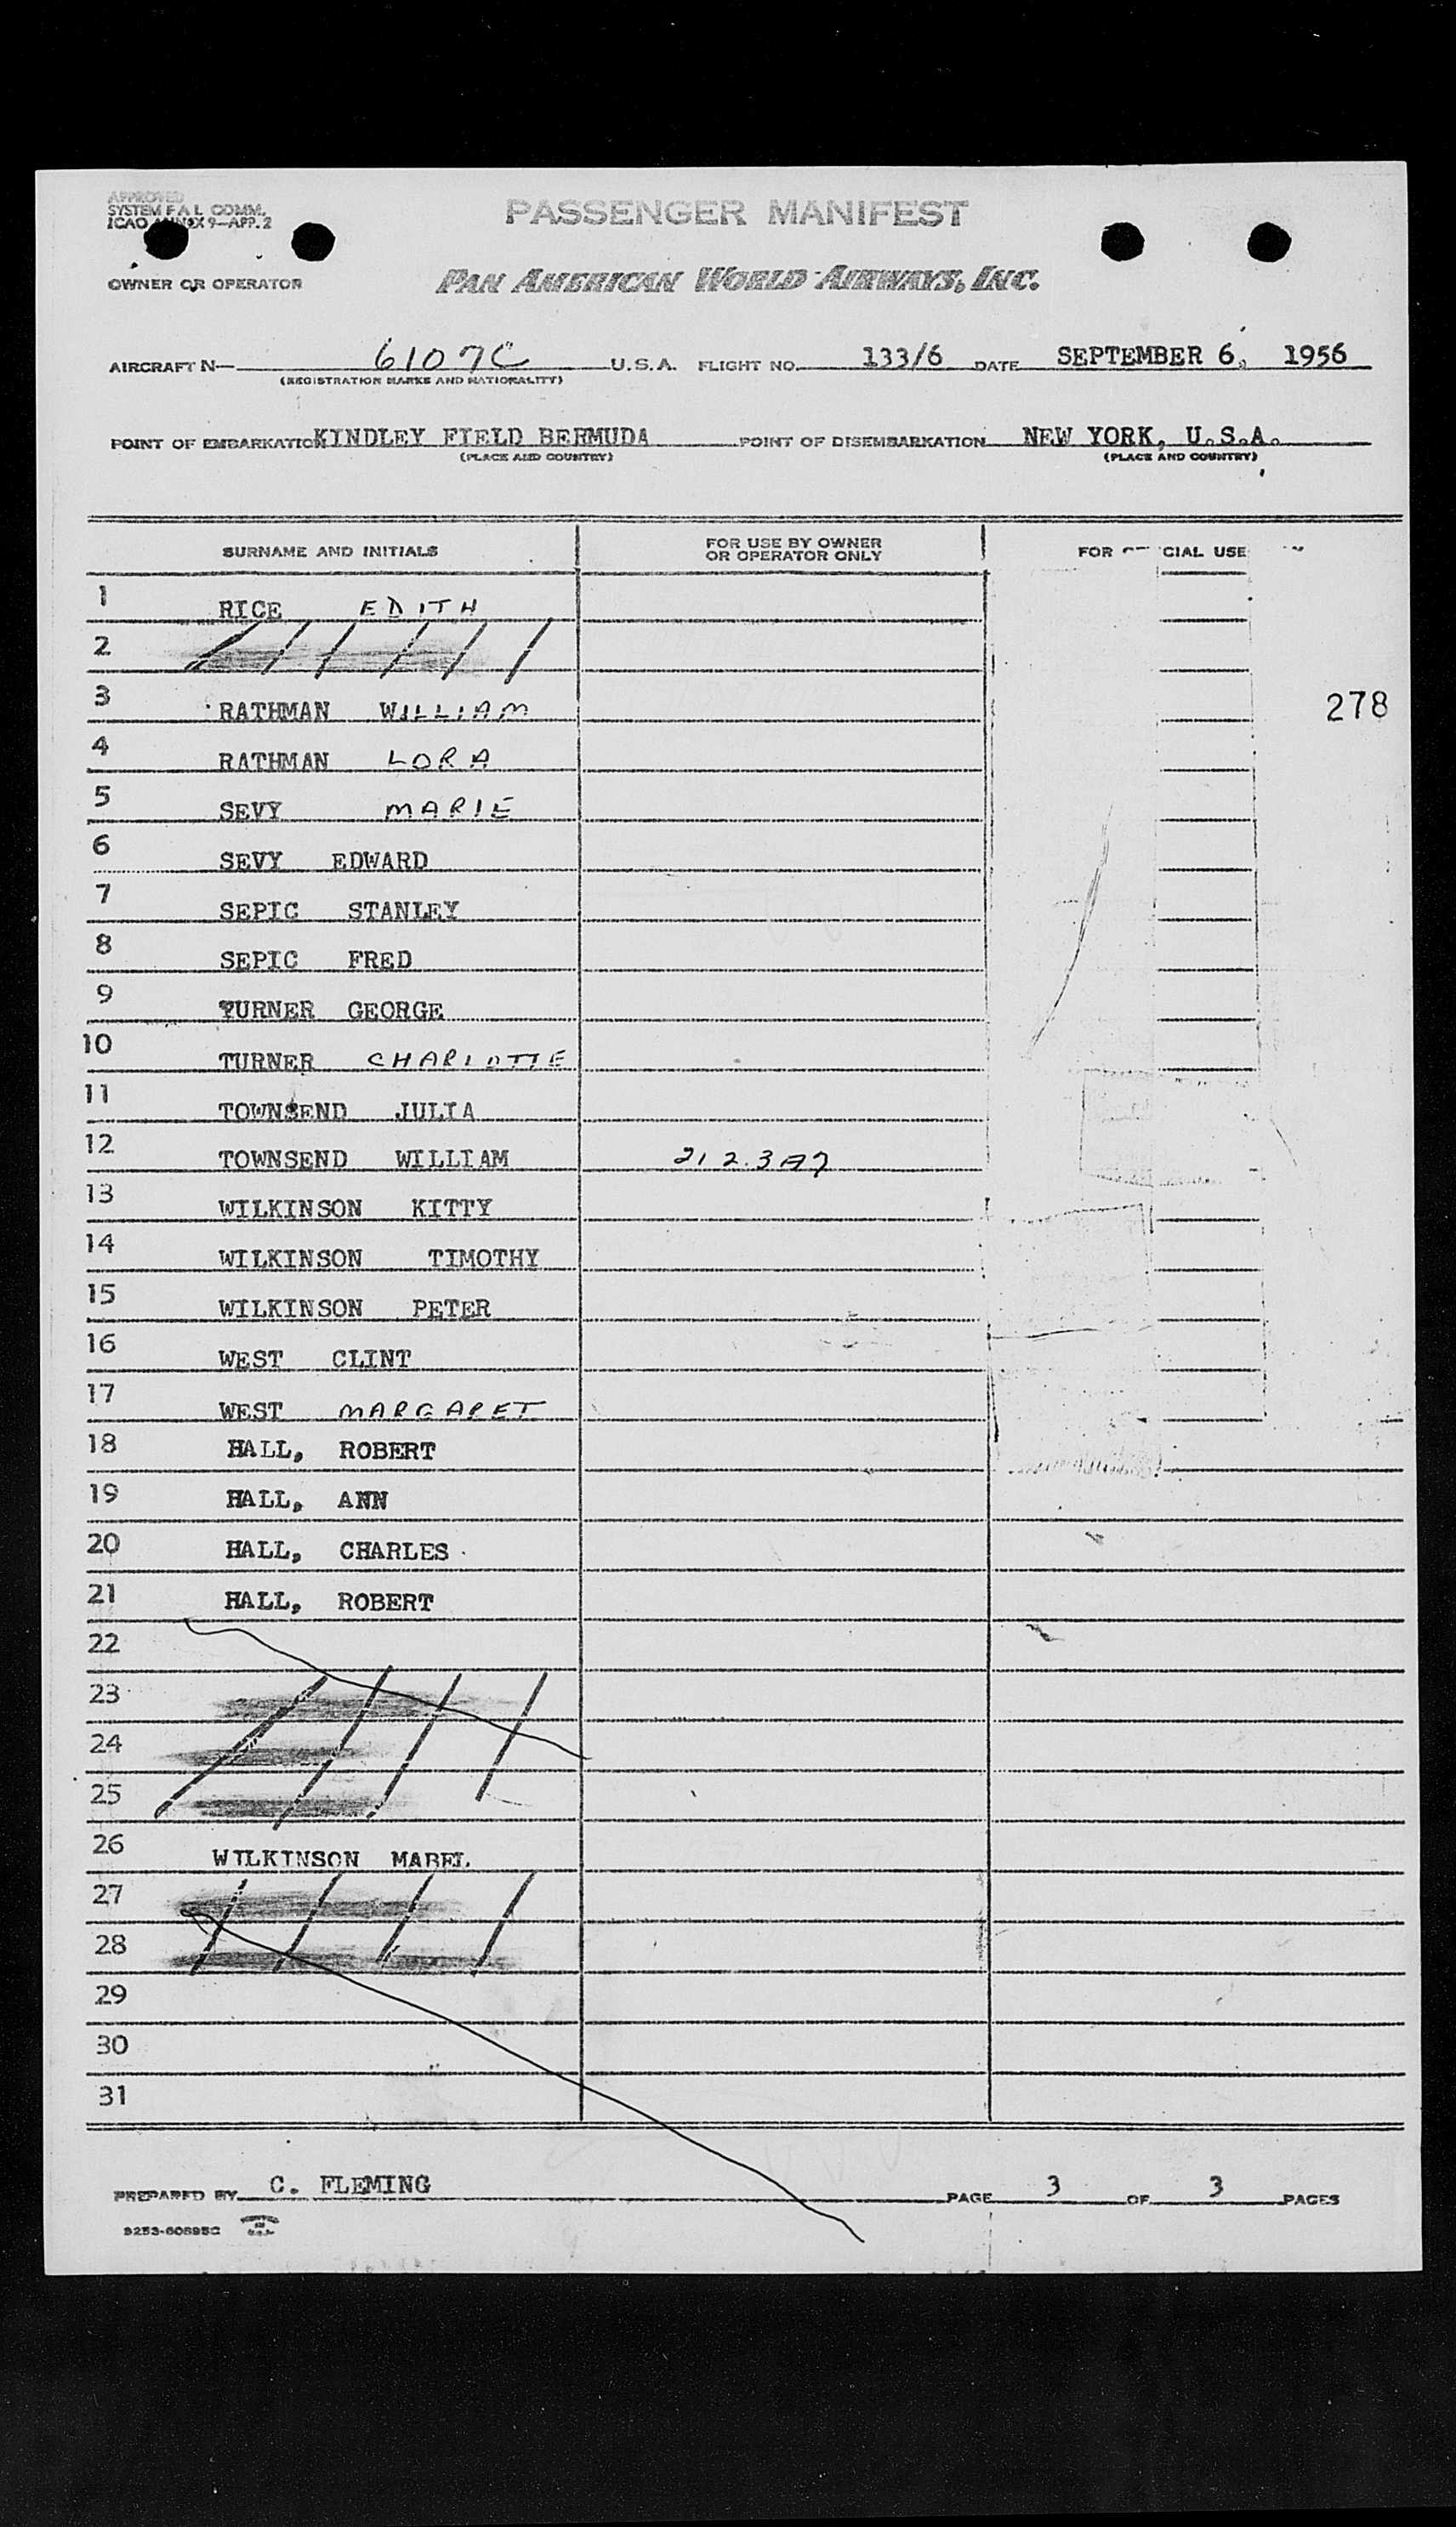 APPROVED
SYSTEM F A L COMM.
ICAO ANNEX 9—APP. 2
PASSENGER MANIFEST
OWNER OR OPERATOR
PAN AMERICAN WORLD AIRWAYS, INC.
AIRCRAFT N— 6107C U.S.A. FLIGHT NO. 133/6 DATE SEPTEMBER 6, 1956
(REGISTRATION MARKS AND NATIONALITY)
POINT OF EMBARKATION KINDLEY FIELD BERMUDA POINT OF DISEMBARKATION NEW YORK, U.S.A.
(PLACE AND COUNTRY) (PLACE AND COUNTRY)
SURNAME AND INITIALS FOR USE BY OWNER OR OPERATOR ONLY FOR CIAL USE
1 RICE EDITH
2
3 RATHMAN WILLIAM
278
4 RATHMAN LORA
5 SEVY MARIE
6 SEVY EDWARD
7 SEPIC STANLEY
8 SEPIC FRED
9 TURNER GEORGE
10 TURNER CHARLOTTE
11 TOWNSEND JULIA
12 TOWNSEND WILLIAM
13 WILKINSON KITTY
14 WILKINSON TIMOTHY
15 WILKINSON PETER
16 WEST CLINT
17 WEST MARGARET
18 HALL, ROBERT
19 HALL, ANN
20 HALL, CHARLES
21 HALL, ROBERT
22
23
24
25
26 WILKINSON MABEL
27
28
29
30
31
PREPARED BY C. FLEMING PAGE 3 OF 3 PAGES